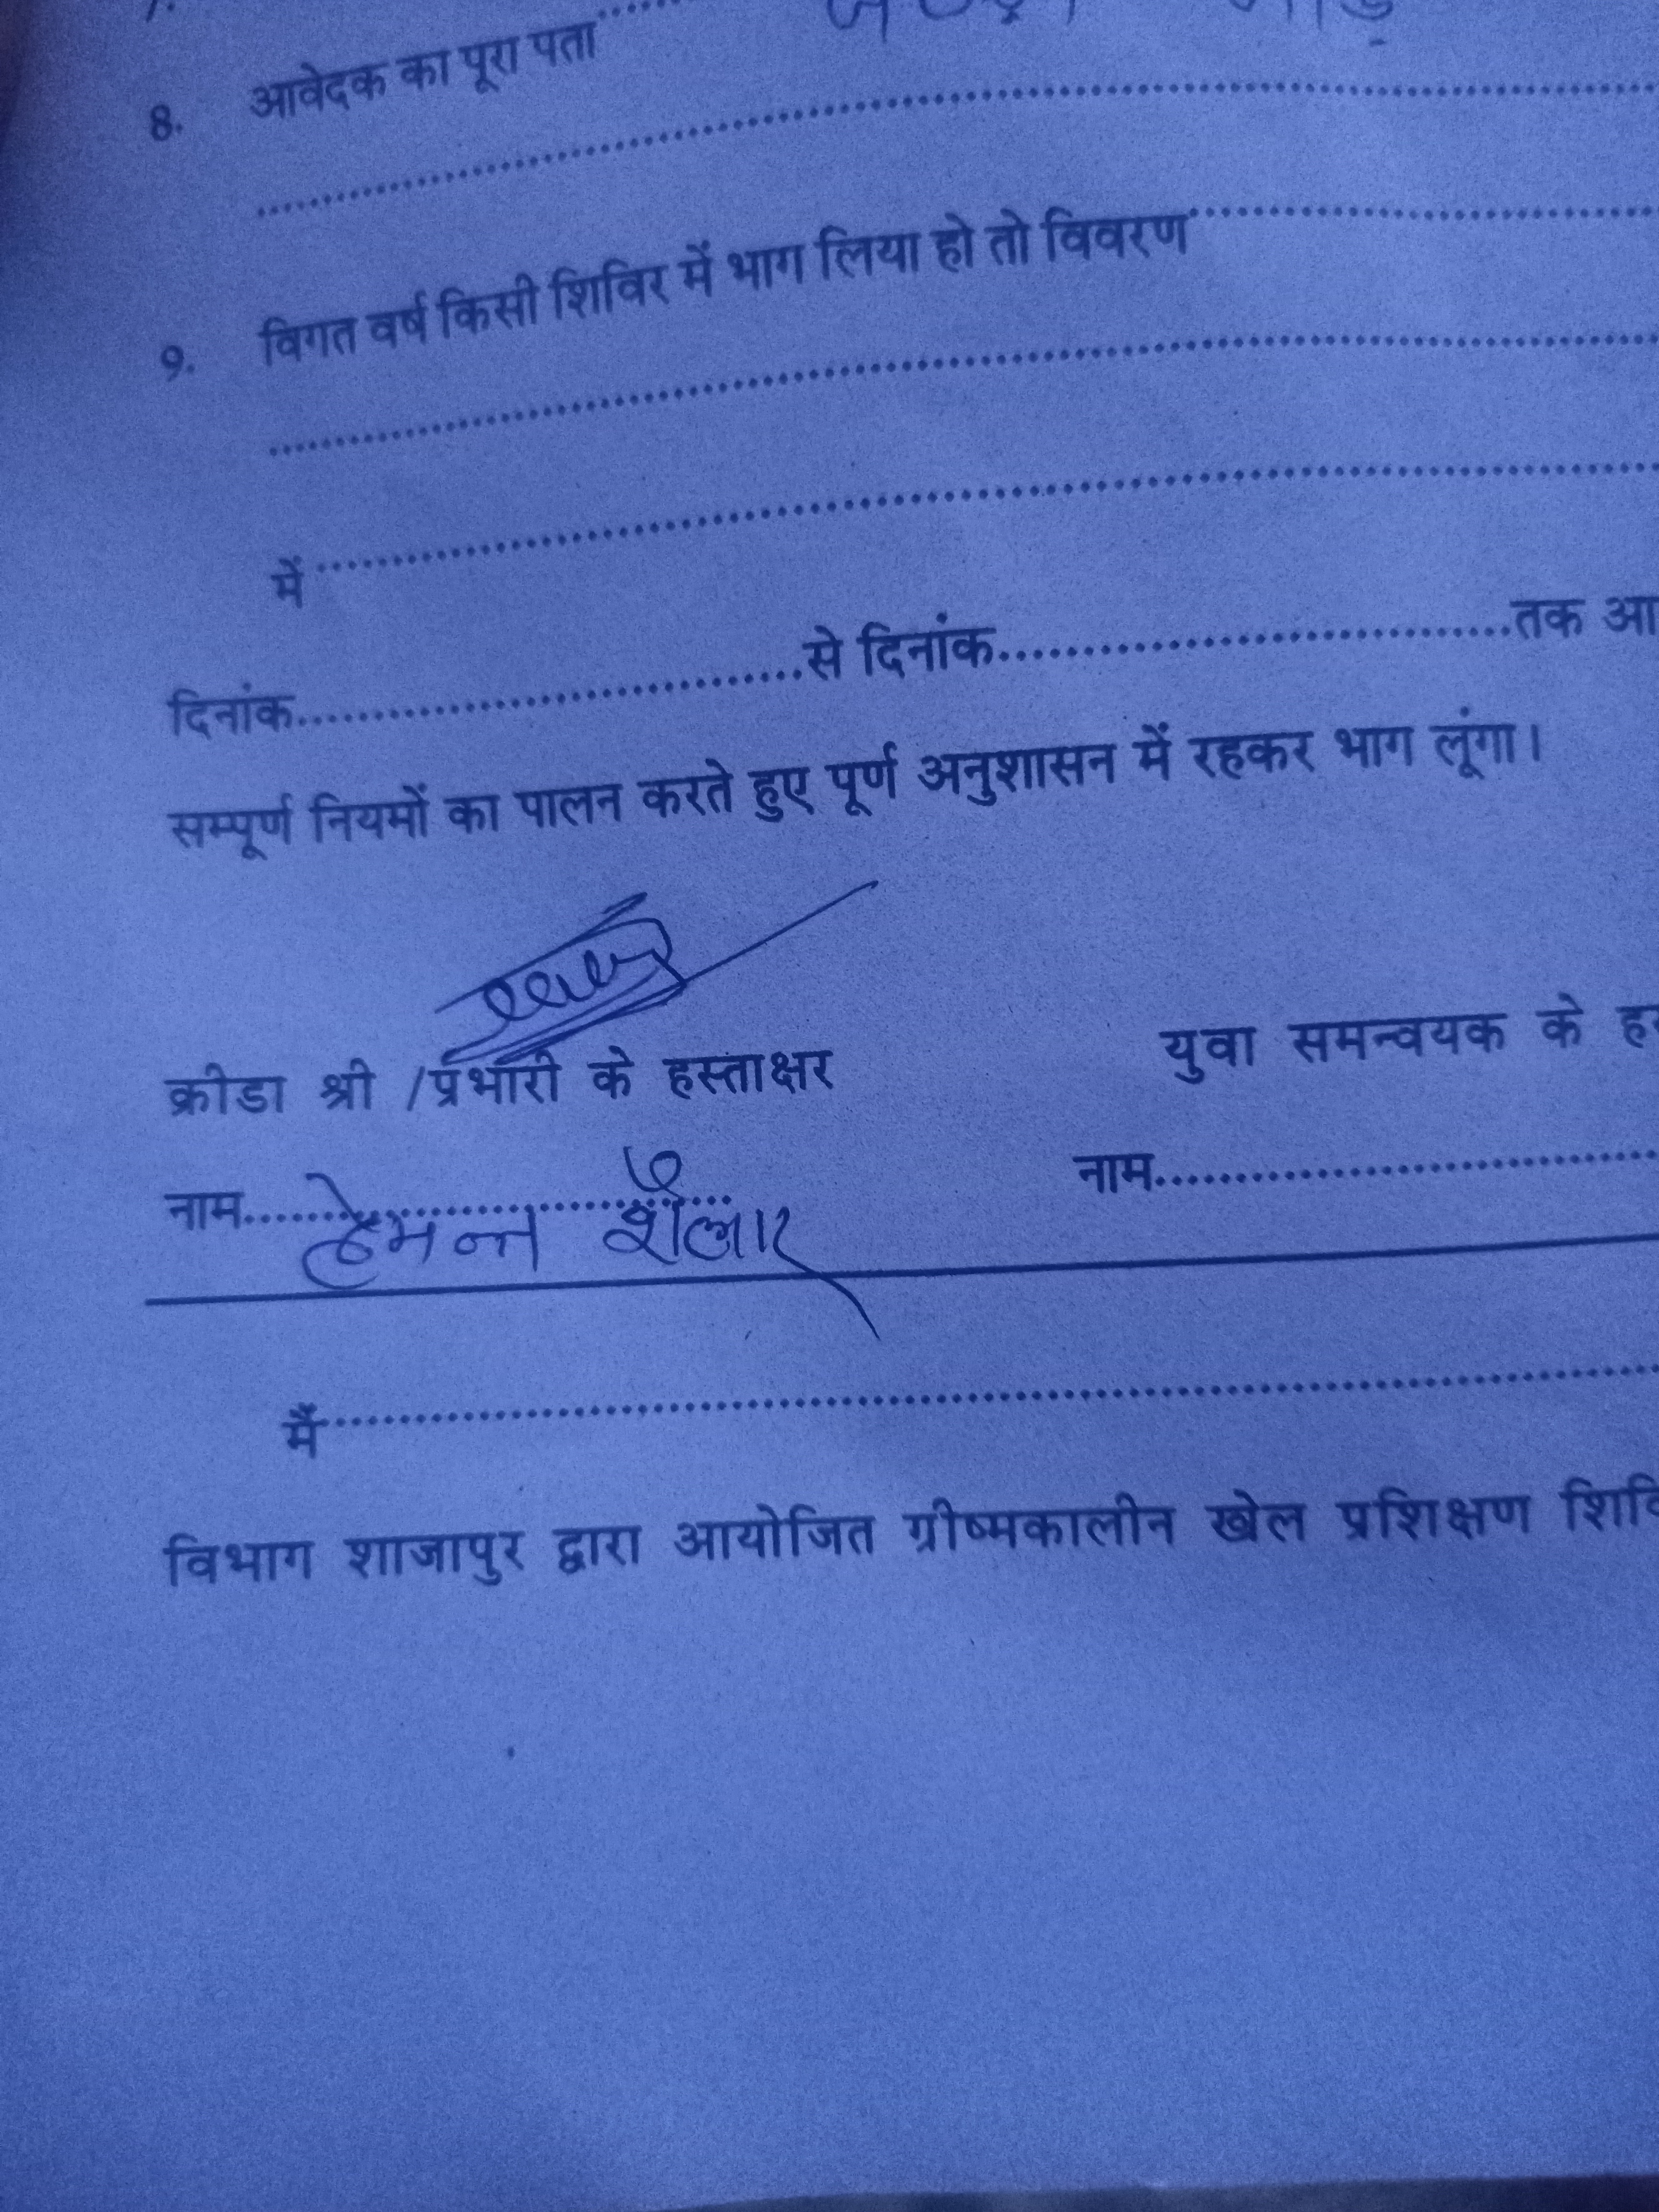 8. आवेदक का पूरा पता....................
....................................................................
9. विगत वर्ष किसी शिविर में भाग लिया हो तो विवरण....................
....................................................................
में....................................................................
दिनांक..............................से दिनांक..............................तक आ
सम्पूर्ण नियमों का पालन करते हुए पूर्ण अनुशासन में रहकर भाग लूंगा।
क्रीडा श्री /प्रभारी के हस्ताक्षर युवा समन्वयक के ह
नाम.............................. नाम..............................
हेमन्त
मैं....................................................................
विभाग शाजापुर द्वारा आयोजित ग्रीष्मकालीन खेल प्रशिक्षण शिवि